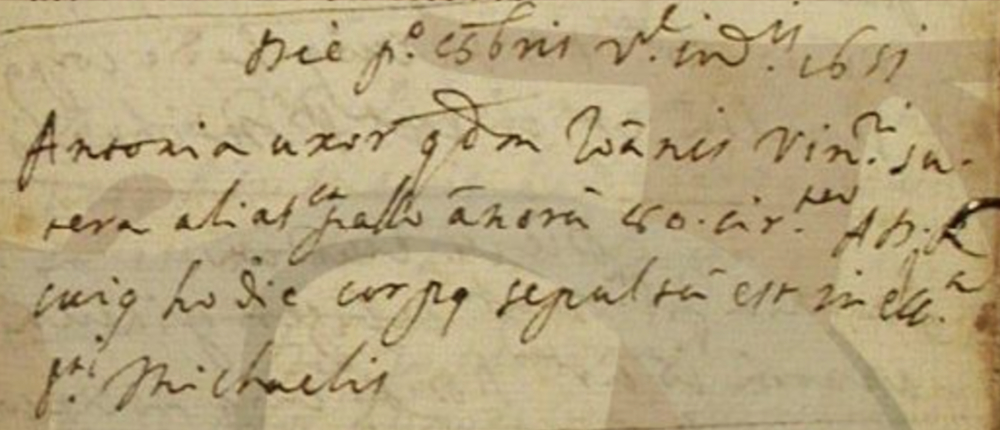 Die p.º xbris v.ª ind.is 1651
Antonia uxor qdm Joānis Vin.ti Su-
rera alias ānorū 80. cir.ter
cuiq hodie corpq sepultū est in eccl.a
S.ti Michaelis